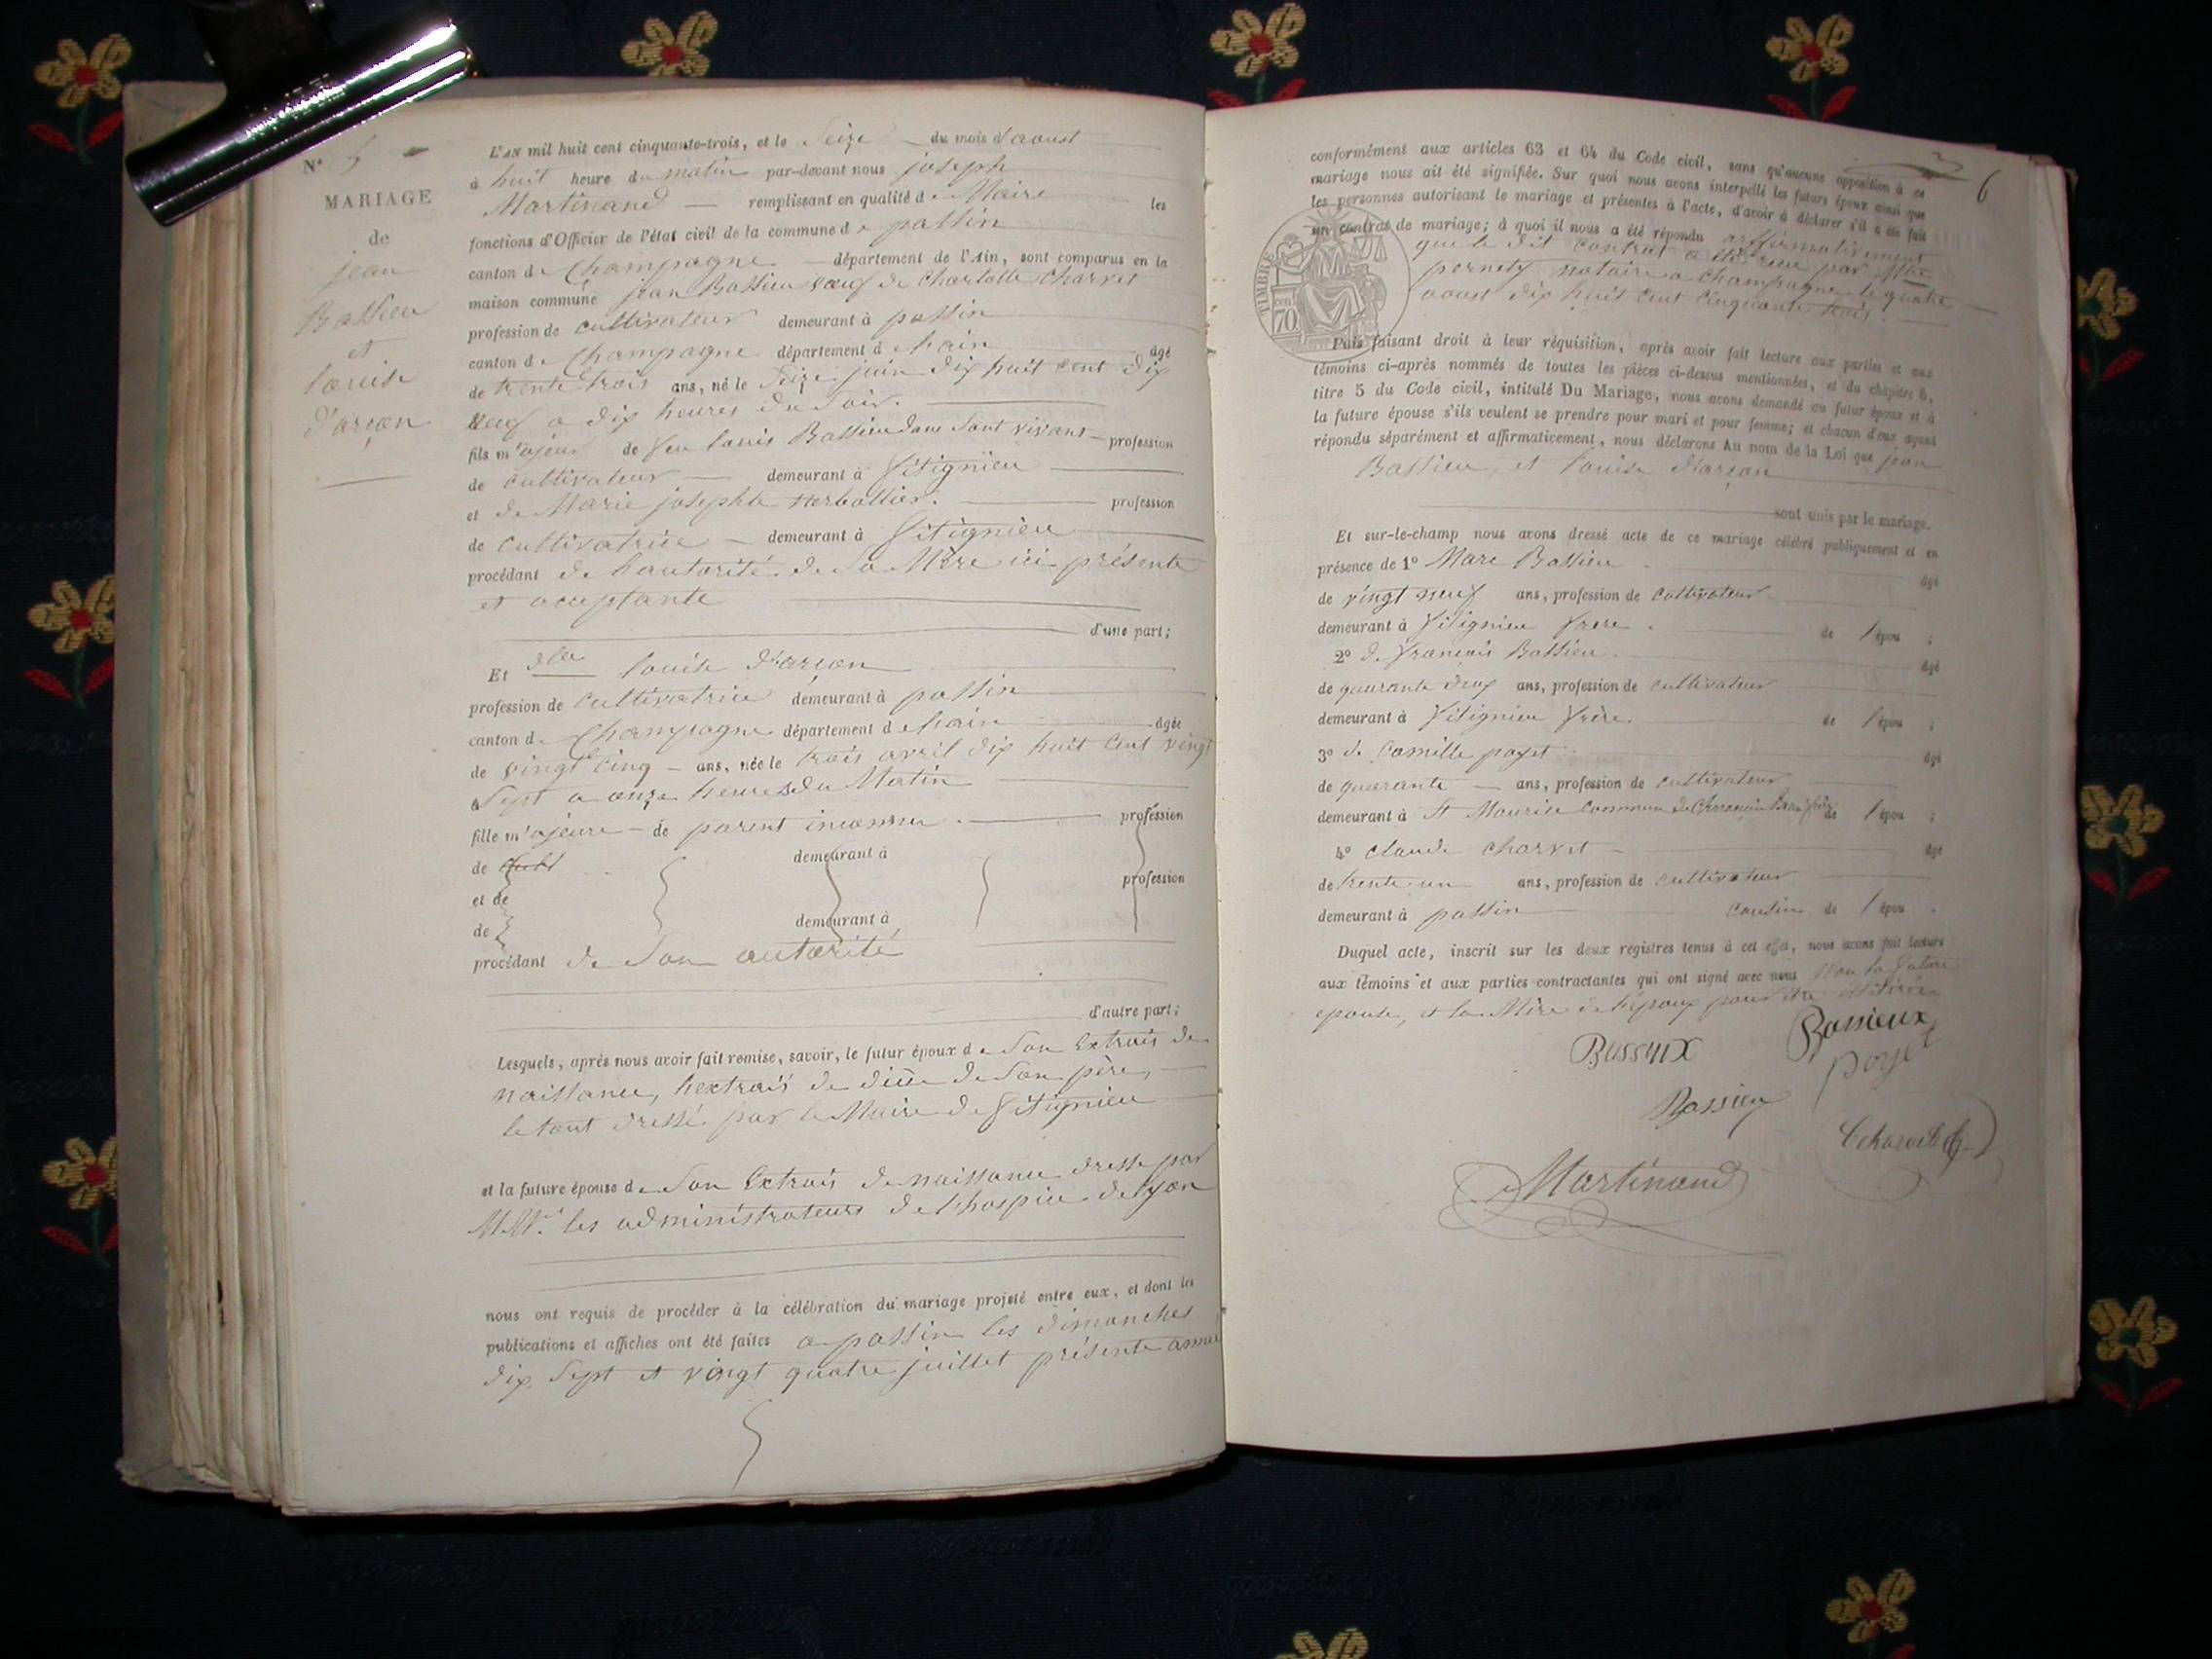 N° 5
MARIAGE
de
jean
Bassieu
et
louise
d'arçon
L'AN mil huit cent cinquante-trois, et le Seize du mois d'aoust
à huit heure du matin par-devant nous joseph
Martinand remplissant en qualité de Maire les
fonctions d'Officier de l'état civil de la commune de passin
canton de Champagne département de l'Ain, sont comparus en la
maison commune jean Bassieu veuf de Charlotte Charvet
profession de cultivateur demeurant à passin
canton de Champagne département de hain âgé
de trente trois ans, né le Seize juin dix huit cent dix
neuf a dix heures du Soir.
fils majeur de feu louis Bassieu dans Sont vivant profession
de cultivateur demeurant à Vitignieu
et de Marie josephte profession
de cultivatrice demeurant à Vitignieu
procédant de hautorité de Sa Mère ici présente
et aceptante
d'une part;
Et dlle louise d'arçon
profession de cultivatrice demeurant à passin
canton de Champagne département de hain âgée
de vingt cinq ans, née le trois avril dix huit cent vingt
Sept a onze heures du Matin
fille majeure de parent inconnu profession
de demeurant à
et de profession
de demeurant à
procédant de Son autorité
d'autre part;
Lesquels, après nous avoir fait remise, savoir, le futur époux de Son Extrais de
naissance, hextrais de de Son père,
le tout dressé par le Maire de Vitignieu
et la future épouse de Son Extrais de naissance dresse par
M.Mrs les administrateurs de l'hospice de lyon
nous ont requis de procéder à la célébration du mariage projeté entre eux, et dont les
publications et affiches ont été faites a passin les dimanches
dix Sept et vingt quatre juillet présente année
6
conformément aux articles 63 et 64 du Code civil, sans qu'aucune opposition à ce
mariage nous ait été signifiée. Sur quoi nous avons interpellé les futurs époux ainsi que
les personnes autorisant le mariage et présentes à l'acte, d'avoir à déclarer s'il a été fait
un contrat de mariage; à quoi il nous a été répondu affirmativement
que le dit contrat a été reçu par Mtre
pernety notaire a Champagne le quatre
aoust dix huit cent cinquante trois.
TIMBRE
70 cen
Puis faisant droit à leur réquisition, après avoir fait lecture aux parties et aux
témoins ci-après nommés de toutes les pièces ci-dessus mentionnées, et du chapitre 6,
titre 5 du Code civil, intitulé Du Mariage, nous avons demandé au futur époux et à
la future épouse s'ils veulent se prendre pour mari et pour femme; et chacun d'eux ayant
répondu séparément et affirmativement, nous déclarons au nom de la Loi que jean
Bassieu et louise d'arçon
sont unis par le mariage.
Et sur-le-champ nous avons dressé acte de ce mariage célébré publiquement et en
présence de 1° Marc Bassieu âgé
de vingt neuf ans, profession de cultivateur
demeurant à Vitignieu frère de l'épou ;
2° de françois Bassieu âgé
de quarante deux ans, profession de cultivateur
demeurant à Vitignieu frère de l'épou ;
3° de Camille poyet âgé
de quarante ans, profession de cultivateur
demeurant à St Maurice Commune de de l'épou ;
4° claude charvet âgé
de trente un ans, profession de cultivateur
demeurant à passin cousin de l'épou .
Duquel acte, inscrit sur les deux registres tenus à cet effet, nous avons fait lecture
aux témoins et aux parties contractantes qui ont signé avec nous non la future
epouse, et la Mère de l'époux pour être illitérée
Bassieux
Bassieux
poyet
Bassieu
C charvet
Martinand